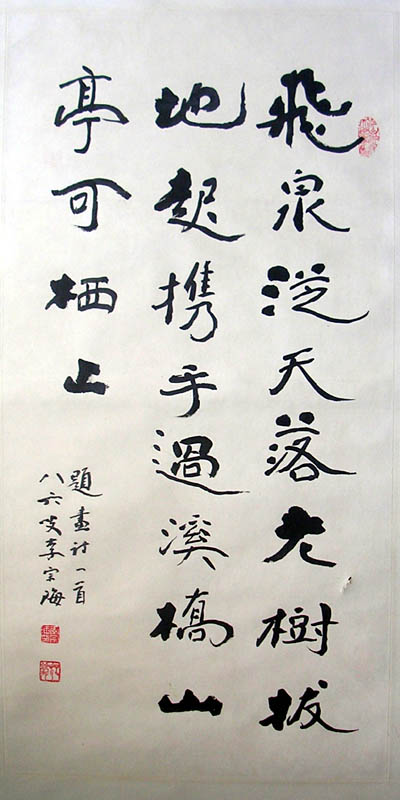 飛泉從天落老樹拔
地起携手過溪橋山
亭可栖止
題畫诗一首
八六叟李宗海